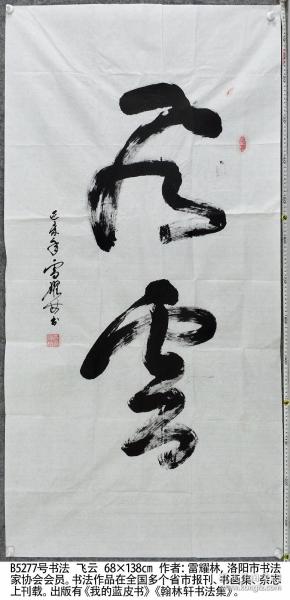 飞云
己亥年雷耀林书
B5277号书法 飞云 68×138cm 作者：雷耀林，洛阳市书法
家协会会员。书法作品在全国多个省市报刊、书画集、杂志
上刊载。出版有《我的蓝皮书》《翰林轩书法集》。